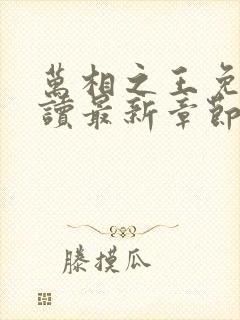 萬相之王免
讀最新章節
滕摸瓜